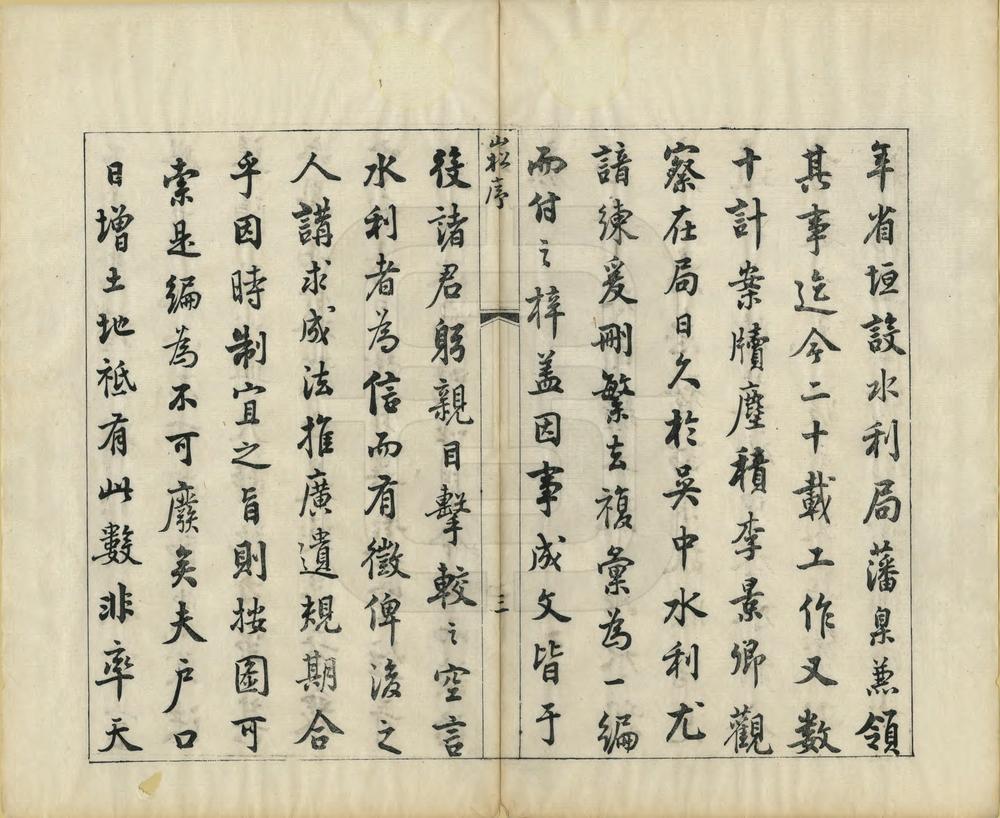 年省垣設水利局藩臬兼領
其事迄今二十載工作又數
十計案牘塵積李景卿觀
察在局日久於吳中水利尤
諳練爰刪繁去複彙為一編
而付之梓蓋因事成文皆于
崧序
三
役諸君躬親目擊較之空言
水利者為信而有徵俾後之
人講求成法推廣遺規期合
乎因時制宜之旨則按圖可
索是編為不可廢矣夫戶口
日增土地祗有此數非率天